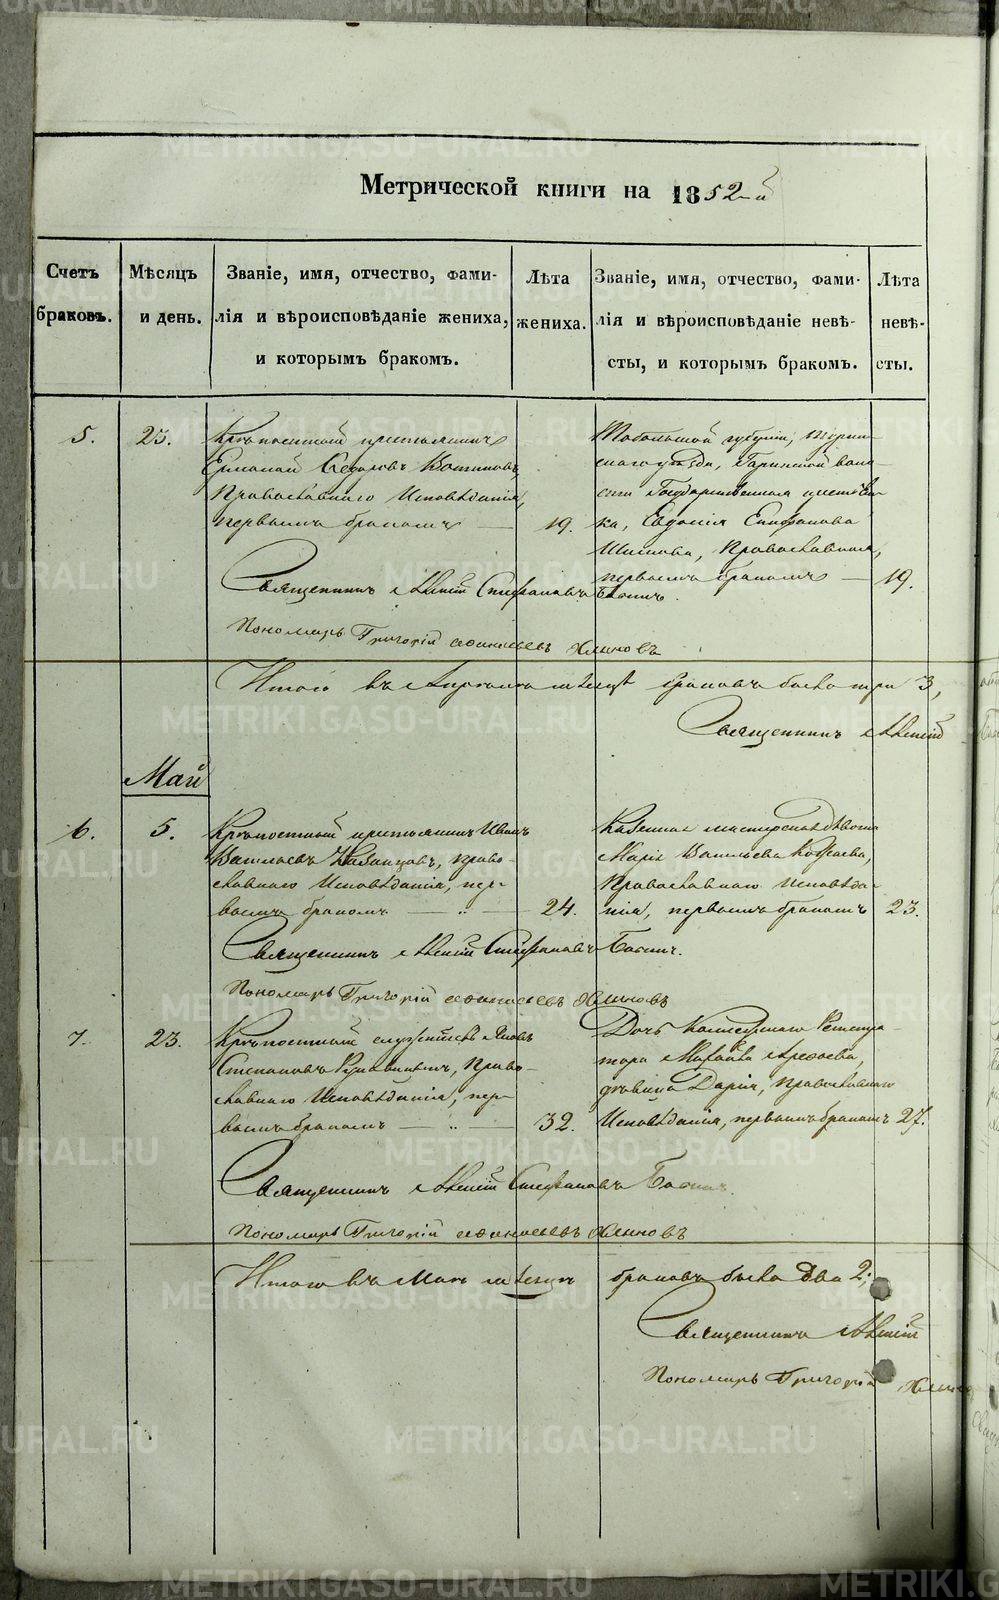 Метрической книги на 1852-й
Счетъ браковъ.
Мѣсяцъ и день.
Званіе, имя, отчество, фами-
лія и вѣроисповѣданіе жениха,
и которымъ бракомъ.
Лѣта жениха.
Званіе, имя, отчество, фами-
лія и вѣроисповѣданіе невѣ-
сты, и которымъ бракомъ.
Лѣта невѣ-
сты.
5.
23.
Крѣпостный крестьянинъ
Православнаго Исповѣданія,
первымъ бракомъ
19.
Тобольской губерніи, Турин-
скаго уѣзда, Гаринской воло-
сти Государственная крестьян-
ка, Евдокія Епифанова
Православная,
первымъ бракомъ
19.
Священникъ Алексій Стефановъ
Пономарь Григорій
Итого въ Апрѣлѣ мѣсяцѣ браковъ было три 3,
Священникъ Алексій
Май
6.
5.
Крѣпостный крестьянинъ Иванъ
Васильевъ Казанцовъ, право-
славнаго Исповѣданія, пер-
вымъ бракомъ
24.
Казенная мастерская дѣвка
Марія Васильева
Православнаго Исповѣда-
нія, первымъ бракомъ
23.
Священникъ Алексій Стефановъ
Пономарь Григорій
7.
23.
Крѣпостный служитель Яковъ
Степановъ Право-
славнаго Исповѣданія, пер-
вымъ бракомъ
32.
Дочь Коллежскаго Регистра
тора Михаила
дѣвица Дарія, православнаго
Исповѣданія, первымъ бракомъ
27.
Священникъ Алексій Стефановъ
Пономарь Григорій
Итого въ Маѣ мѣсяцѣ браковъ было два 2;
Священникъ Алексій
Пономарь Григорій
METRIKI.GASO-URAL.RU